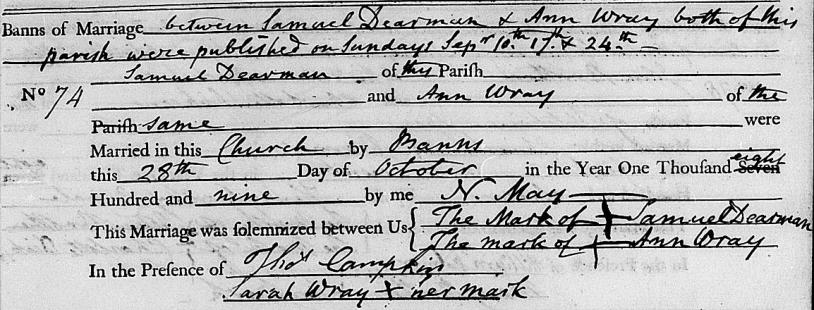 Banns of Marriage between Samuel Dearman & Ann Wray both of this
parish were published on Sundays Sepr 10th 17th & 24th
Samuel Dearman of this Pariſh
No 74 and Ann Wray of the
Pariſh same were
Married in this Church by Banns
this 28th Day of October in the Year One Thouſand Seven eight
Hundred and nine by me N. May
This Marriage was ſolemnized between Us { The Mark of + Samuel Dearman
The mark of + Ann Wray
In the Preſence of Thos Campkin
Sarah Wray + her mark